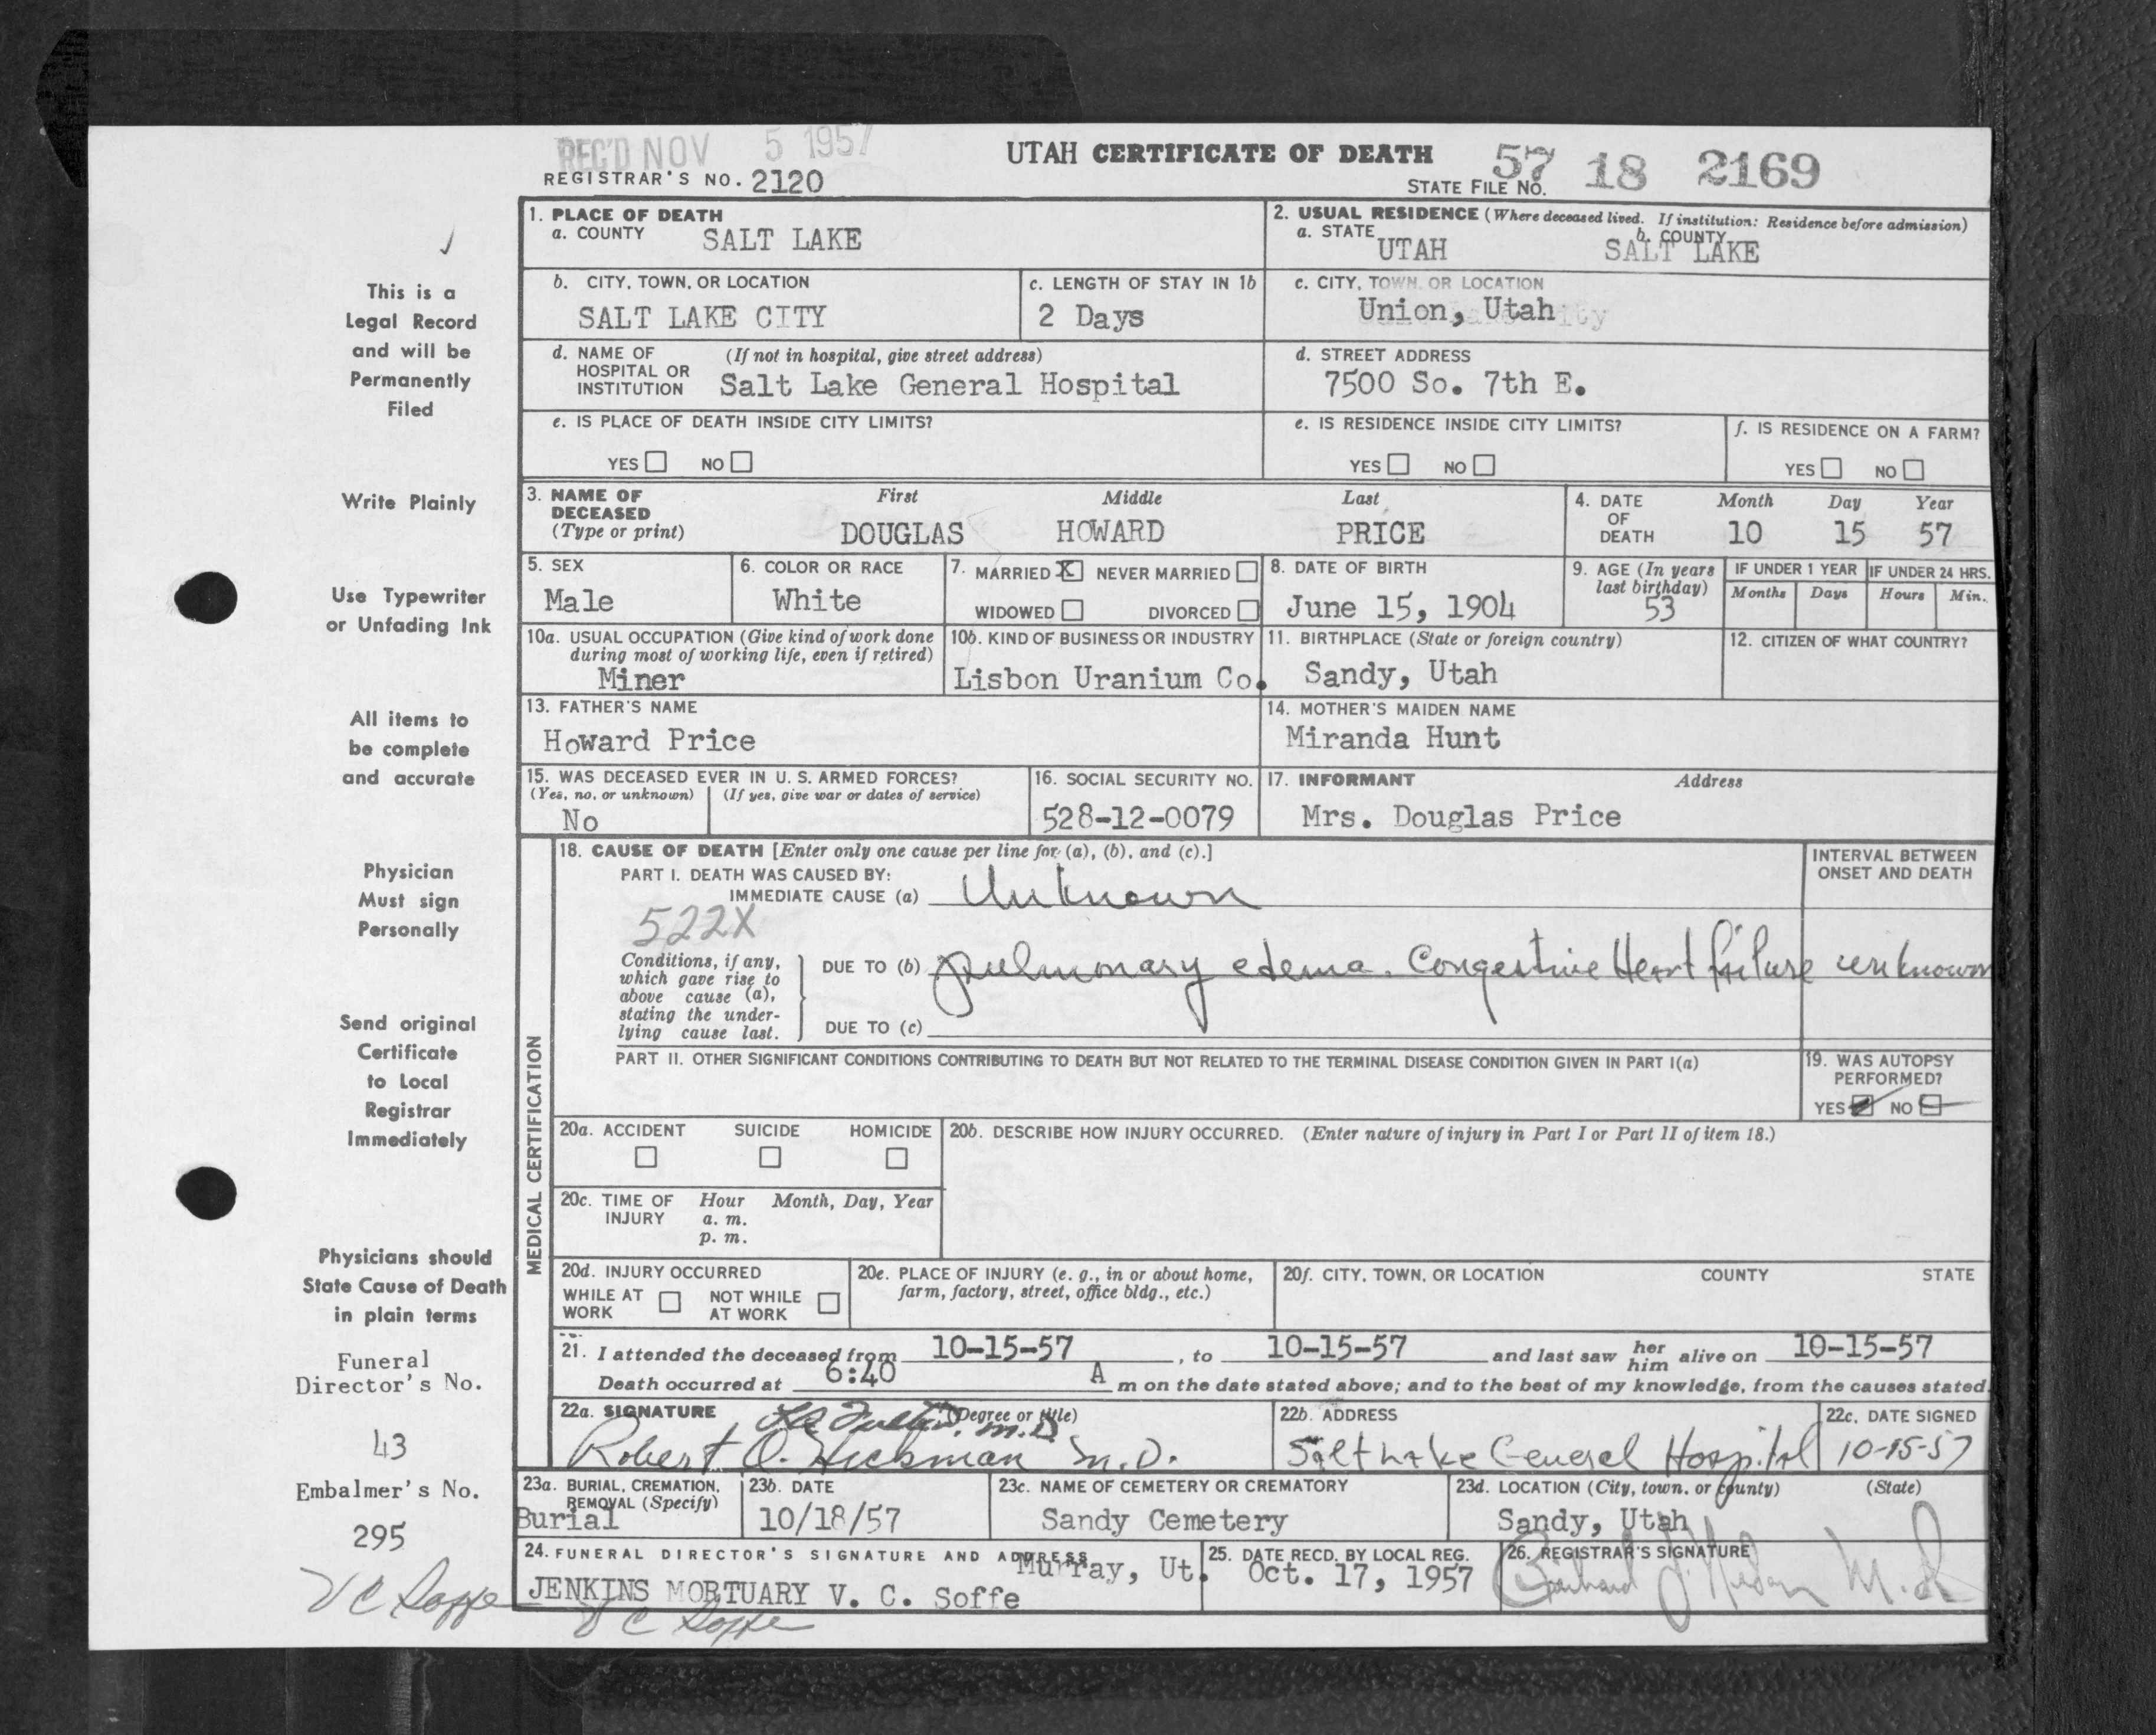 REC'D NOV 5 1957
UTAH CERTIFICATE OF DEATH
57 18 2169
REGISTRAR'S NO. 2120
STATE FILE NO.
This is a
Legal Record
and will be
Permanently
Filed
Write Plainly
Use Typewriter
or Unfading Ink
All items to
be complete
and accurate
Physician
Must sign
Personally
Send original
Certificate
to Local
Registrar
Immediately
Physicians should
State Cause of Death
in plain terms
Funeral
Director's No.
43
Embalmer's No.
295
V C Soffe
1. PLACE OF DEATH
a. COUNTY SALT LAKE
2. USUAL RESIDENCE (Where deceased lived. If institution: Residence before admission)
a. STATE UTAH b. COUNTY SALT LAKE
b. CITY, TOWN, OR LOCATION
SALT LAKE CITY
c. LENGTH OF STAY IN 1b
2 Days
c. CITY, TOWN, OR LOCATION
Union, Utah
d. NAME OF HOSPITAL OR INSTITUTION (If not in hospital, give street address)
Salt Lake General Hospital
d. STREET ADDRESS
7500 So. 7th E.
e. IS PLACE OF DEATH INSIDE CITY LIMITS?
YES NO
e. IS RESIDENCE INSIDE CITY LIMITS?
YES NO
f. IS RESIDENCE ON A FARM?
YES NO
3. NAME OF DECEASED (Type or print)
First Middle Last
DOUGLAS HOWARD PRICE
4. DATE OF DEATH
Month Day Year
10 15 57
5. SEX
Male
6. COLOR OR RACE
White
7. MARRIED X NEVER MARRIED
WIDOWED DIVORCED
8. DATE OF BIRTH
June 15, 1904
9. AGE (In years last birthday)
53
IF UNDER 1 YEAR
Months Days
IF UNDER 24 HRS.
Hours Min.
10a. USUAL OCCUPATION (Give kind of work done
during most of working life, even if retired)
Miner
10b. KIND OF BUSINESS OR INDUSTRY
Lisbon Uranium Co.
11. BIRTHPLACE (State or foreign country)
Sandy, Utah
12. CITIZEN OF WHAT COUNTRY?
13. FATHER'S NAME
Howard Price
14. MOTHER'S MAIDEN NAME
Miranda Hunt
15. WAS DECEASED EVER IN U. S. ARMED FORCES?
(Yes, no, or unknown) (If yes, give war or dates of service)
No
16. SOCIAL SECURITY NO.
528-12-0079
17. INFORMANT Address
Mrs. Douglas Price
MEDICAL CERTIFICATION
18. CAUSE OF DEATH [Enter only one cause per line for (a), (b), and (c).]
PART I. DEATH WAS CAUSED BY:
IMMEDIATE CAUSE (a) Unknown
INTERVAL BETWEEN
ONSET AND DEATH
522X
Conditions, if any,
which gave rise to
above cause (a),
stating the under-
lying cause last.
DUE TO (b) pulmonary edema. Congestive Heart failure unknown
DUE TO (c)
PART II. OTHER SIGNIFICANT CONDITIONS CONTRIBUTING TO DEATH BUT NOT RELATED TO THE TERMINAL DISEASE CONDITION GIVEN IN PART I(a)
19. WAS AUTOPSY
PERFORMED?
YES NO
20a. ACCIDENT SUICIDE HOMICIDE
20b. DESCRIBE HOW INJURY OCCURRED. (Enter nature of injury in Part I or Part II of item 18.)
20c. TIME OF INJURY Hour Month, Day, Year
a. m.
p. m.
20d. INJURY OCCURRED
WHILE AT WORK NOT WHILE AT WORK
20e. PLACE OF INJURY (e. g., in or about home,
farm, factory, street, office bldg., etc.)
20f. CITY, TOWN, OR LOCATION COUNTY STATE
21. I attended the deceased from 10-15-57, to 10-15-57 and last saw her him alive on 10-15-57
Death occurred at 6:40 A m on the date stated above; and to the best of my knowledge, from the causes stated.
22a. SIGNATURE (Degree or title)
M.D.
Robert O. Hickman M.D.
22b. ADDRESS
Salt Lake General Hospital
22c. DATE SIGNED
10-15-57
23a. BURIAL, CREMATION,
REMOVAL (Specify)
Burial
23b. DATE
10/18/57
23c. NAME OF CEMETERY OR CREMATORY
Sandy Cemetery
23d. LOCATION (City, town, or county) (State)
Sandy, Utah
24. FUNERAL DIRECTOR'S SIGNATURE AND ADDRESS
Murray, Ut.
JENKINS MORTUARY V. C. Soffe
V C Soffe
25. DATE RECD. BY LOCAL REG.
Oct. 17, 1957
26. REGISTRAR'S SIGNATURE